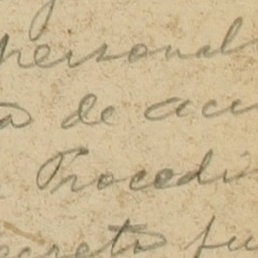 personal
a de acu
Procedi
ecreto fu